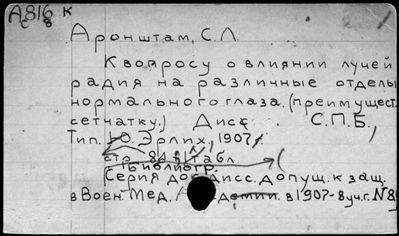 А816 к
с 8
Аронштам, С.Л.
К вопросу о влиянии лучей
радия на различные отделы
нормального глаза. (преимущест.
сетчатку.) Дисс. С.П.Б.,
Тип. Ю. Эрлих, 1907.
стр. 84 1 табл
Библиогр.
Серия док. дисс. допущ. к защ.
в Воен. Мед. в 1907-8 уч. г. № 8